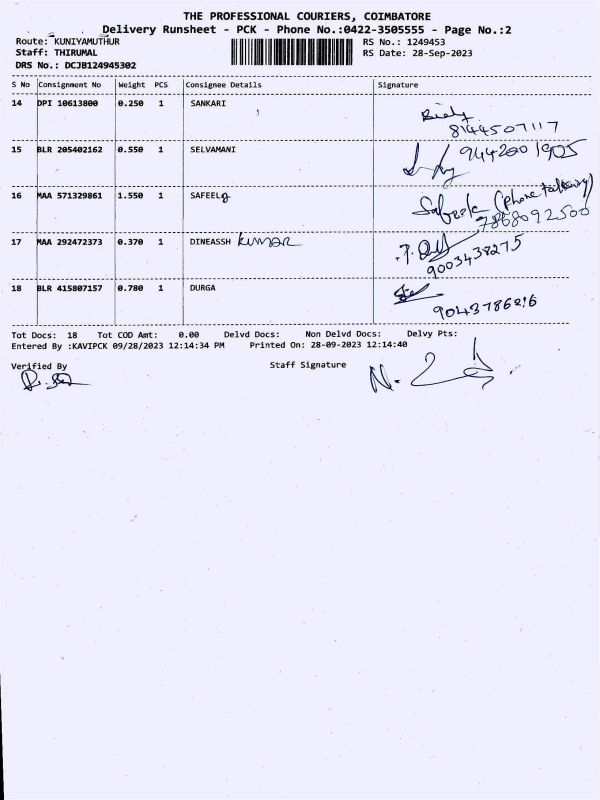 THE PROFESSIONAL COURIERS, COIMBATORE
Delivery Runsheet - PCK - Phone No.:0422-3505555 - Page No.:2
Route: KUNIYAMUTHUR
RS No.: 1249453
Staff: THIRUMAL
RS Date: 28-Sep-2023
DRS No.: DCJB124945302
S No Consignment No Weight PCS Consignee Details Signature
14 DPI 10613800 0.250 1 SANKARI
8144507117
15 BLR 205402162 0.550 1 SELVAMANI 9442001905
16 MAA 571329861 1.550 1 SAFEELQ
7868092500
17 MAA 292472373 0.370 1 DINEASSH Kumar
9003438275
18 BLR 415807157 0.780 1 DURGA
9043786816
Tot Docs: 18 Tot COD Amt: 0.00 Delvd Docs: Non Delvd Docs: Delvy Pts:
Entered By :KAVIPCK 09/28/2023 12:14:34 PM Printed On: 28-09-2023 12:14:40
Verified By Staff Signature